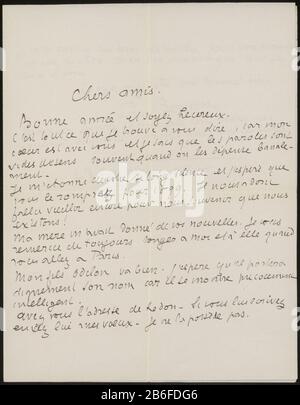 Chers amis.
Bonne année et soyez heureux.
C'est tout ce que je trouve à vous dire, car mon
cœur est avec vous et je sais que les paroles sont
vides de sens souvent quand on les dépense banale-
ment.
Je m'étonne et j'espère que
pour 1909. Je
veiller encore pour nous que nous
existons!
Ma mère m'avait donné de vos nouvelles. Je vous
remercie de toujours songer à moi et à elle quand
vous allez à Paris.
Mon fils Odilon va bien. J'espère qu'il portera
dignement son nom car il se montre précocement
intelligent.
Avez vous l'adresse de Redon. Si vous lui écrivez
envoyez lui mes vœux. Je ne la possède pas.
alamy
Image ID: 2B6FDG6
www.alamy.com